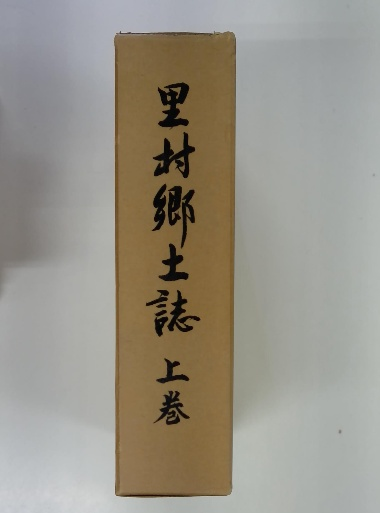 里村郷土誌 上巻